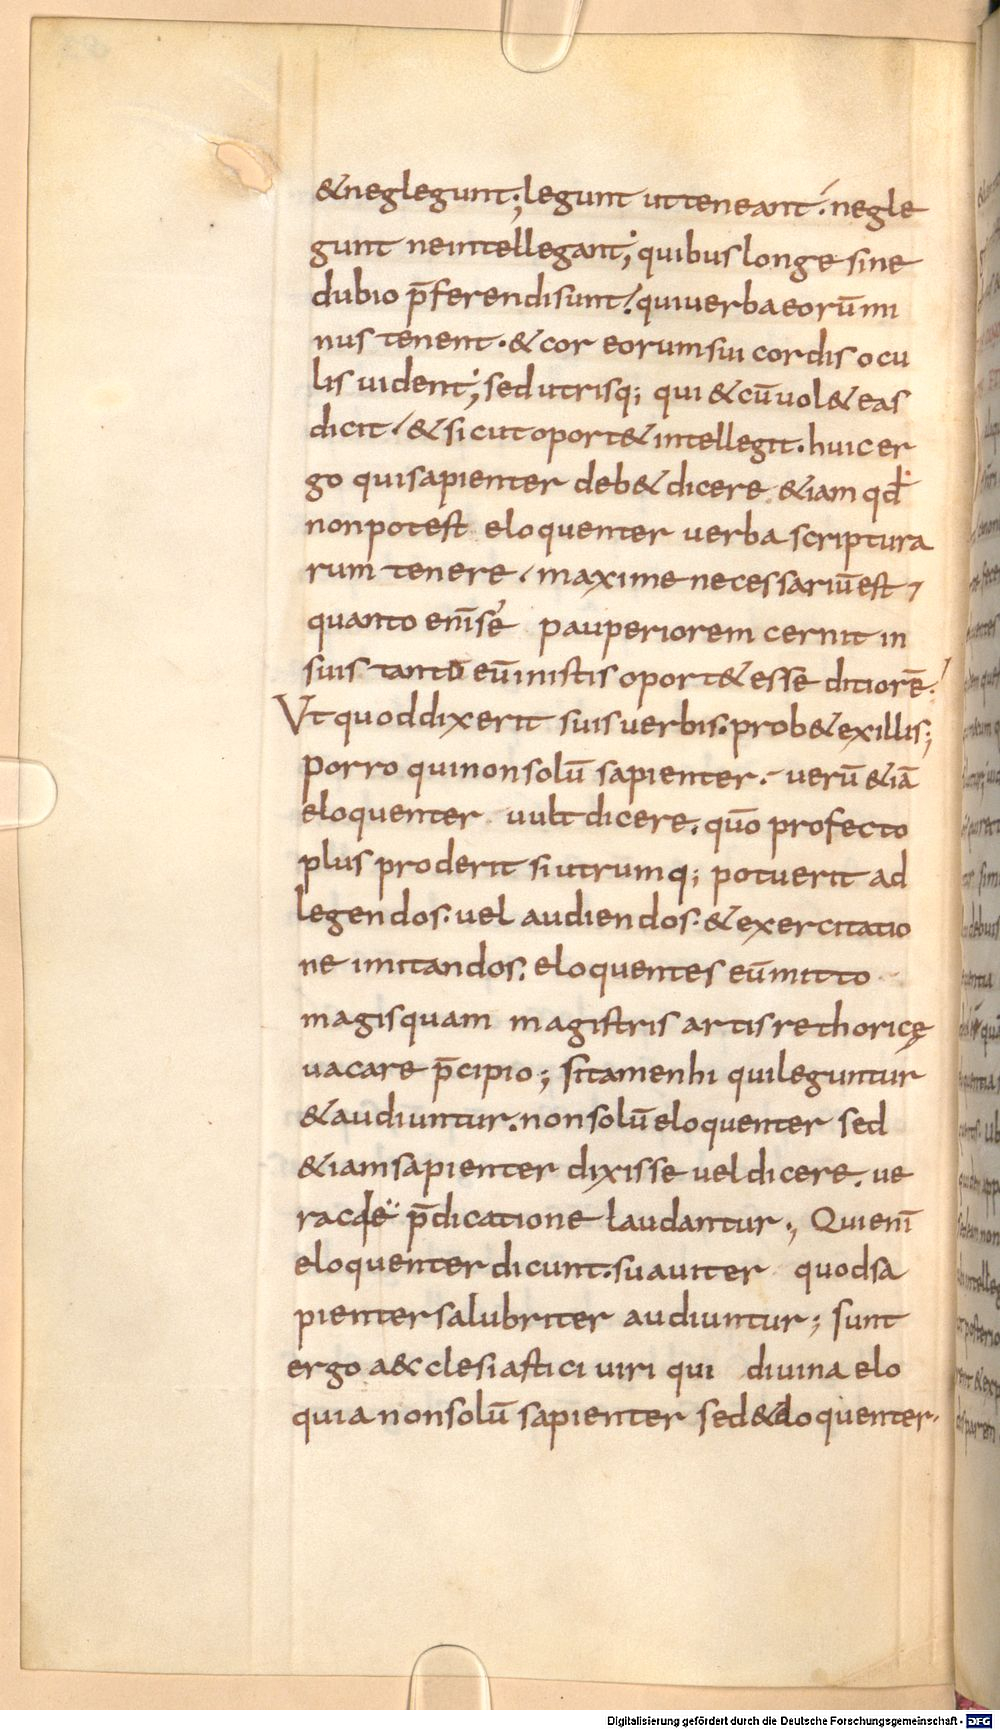 &neglegunt; legunt ut teneant. negle
gunt neintellegant; quibus longe sine
dubio p̄ferendi sunt. qui verba eorū mi
nus tenent. & cor eorum sui cordis ocu
lis uident; sed utrisq; qui & cū uol& eas
dicit / & sicut oport& intellegit. huic er
go qui sapienter deb& dicere. &iam qđ
non potest eloquenter verba scriptura
rum tenere / maxime necessariū est,
quanto enī se pauperiorem cernit in
suis tanto eū in istis oport& esse ditiorē.
Vt quod dixerit suis verbis. prob& ex illis;
porro qui non solū sapienter. verū &iā
eloquenter uult dicere. quō profecto
plus proderit si utrumq; potuerit ad
legendos. vel audiendos. & exercitatio
ne imitandos. eloquentes eū mitto
magis quam magistris artis rethoricę
uacare p̄cipio; si tamen hi qui leguntur
& audiuntur. non solū eloquenter sed
&iam sapienter dixisse vel dicere. ue
race p̄dicatione laudantur; Qui enī
eloquenter dicunt. suauiter quod sa
pienter salubriter audiuntur; sunt
ergo a&cclesiastici uiri qui diuina elo
quia non solū sapienter sed & eloquenter.
Digitalisierung gefördert durch die Deutsche Forschungsgemeinschaft - DFG